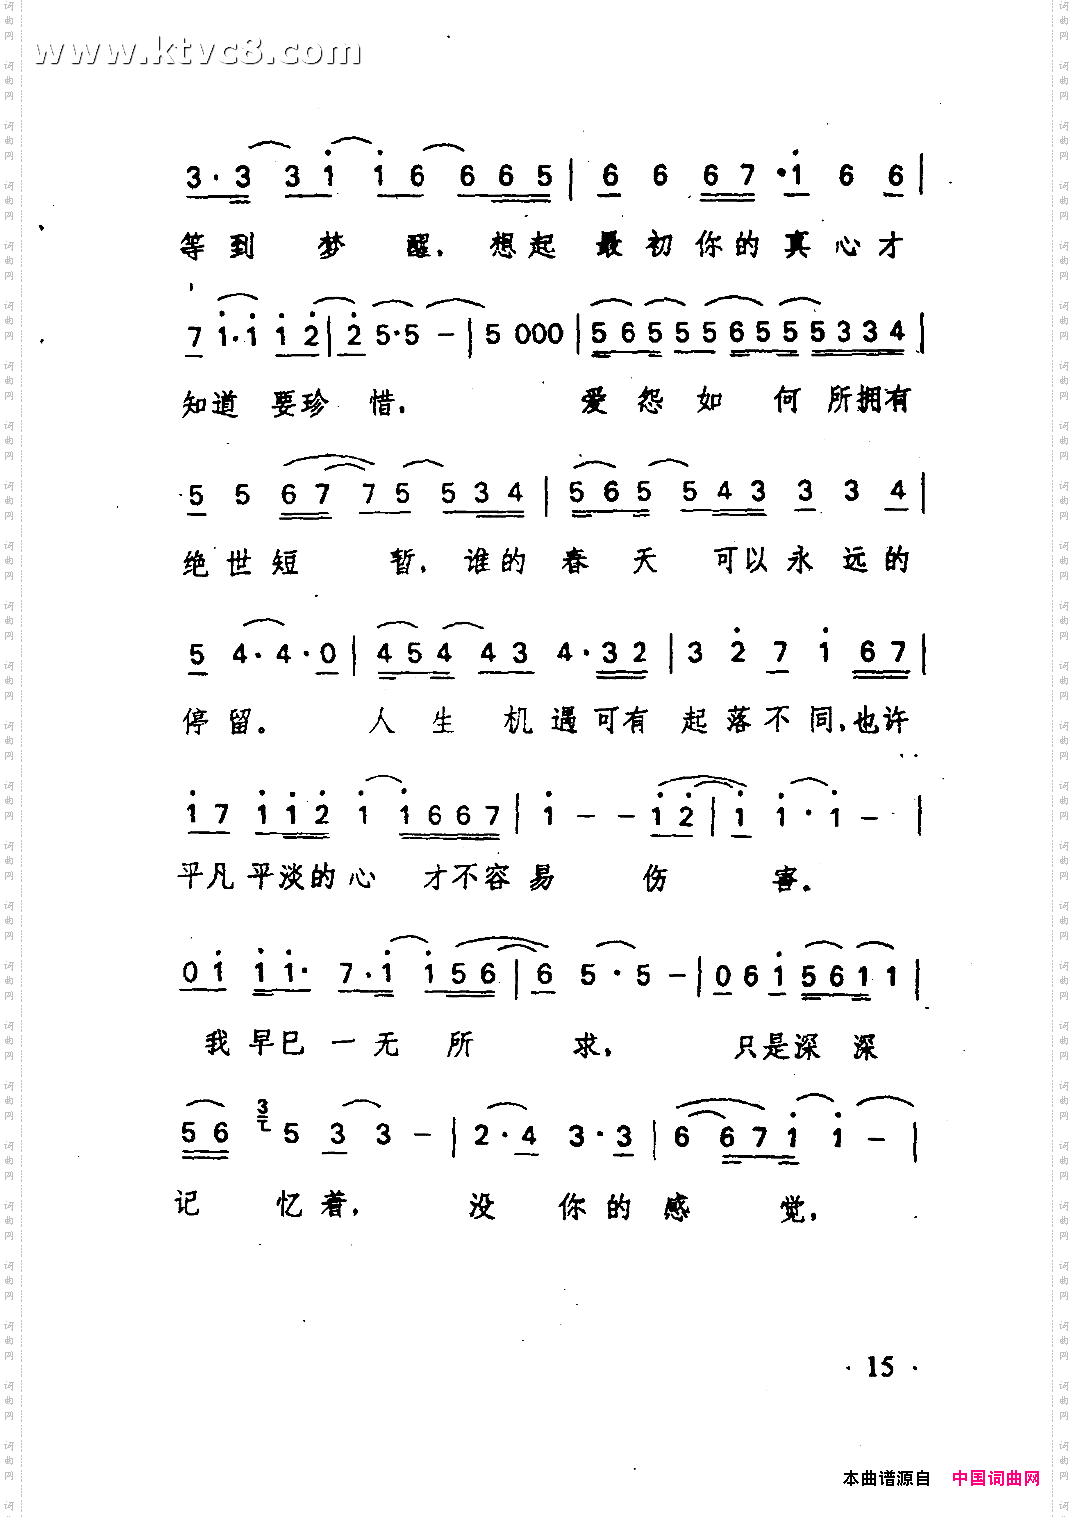 www.ktvc8.com
3·3 3i i6 665 | 6 6 67 ·i 6 6 |
等到 梦 醒，想起 最初你的真心才
7 i·i i2 | 2 5·5 - | 5 000 | 565 55 655 5334 |
知道 要珍 惜， 爱 怨 如 何 所拥有
5 5 67 75 534 | 565 543 3 3 4 |
绝世短 暂，谁的 春 天 可以永远的
5 4·4·0 | 454 43 4·32 | 3 2 7 i 67 |
停留。 人生 机遇可有 起落不同，也许
i7 ii2 i i667 | i - - i2 | i i·i - |
平凡平淡的心 才不容易 伤 害。
0i ii· 7·i i56 | 6 5·5 - | 06i 561 1 |
我早已一无 所 求， 只是深 深
56 3 5 3 3 - | 2·4 3·3 | 6 67i i - |
记 忆着， 没 你的感 觉，
· 15 ·
本曲谱源自 中国词曲网